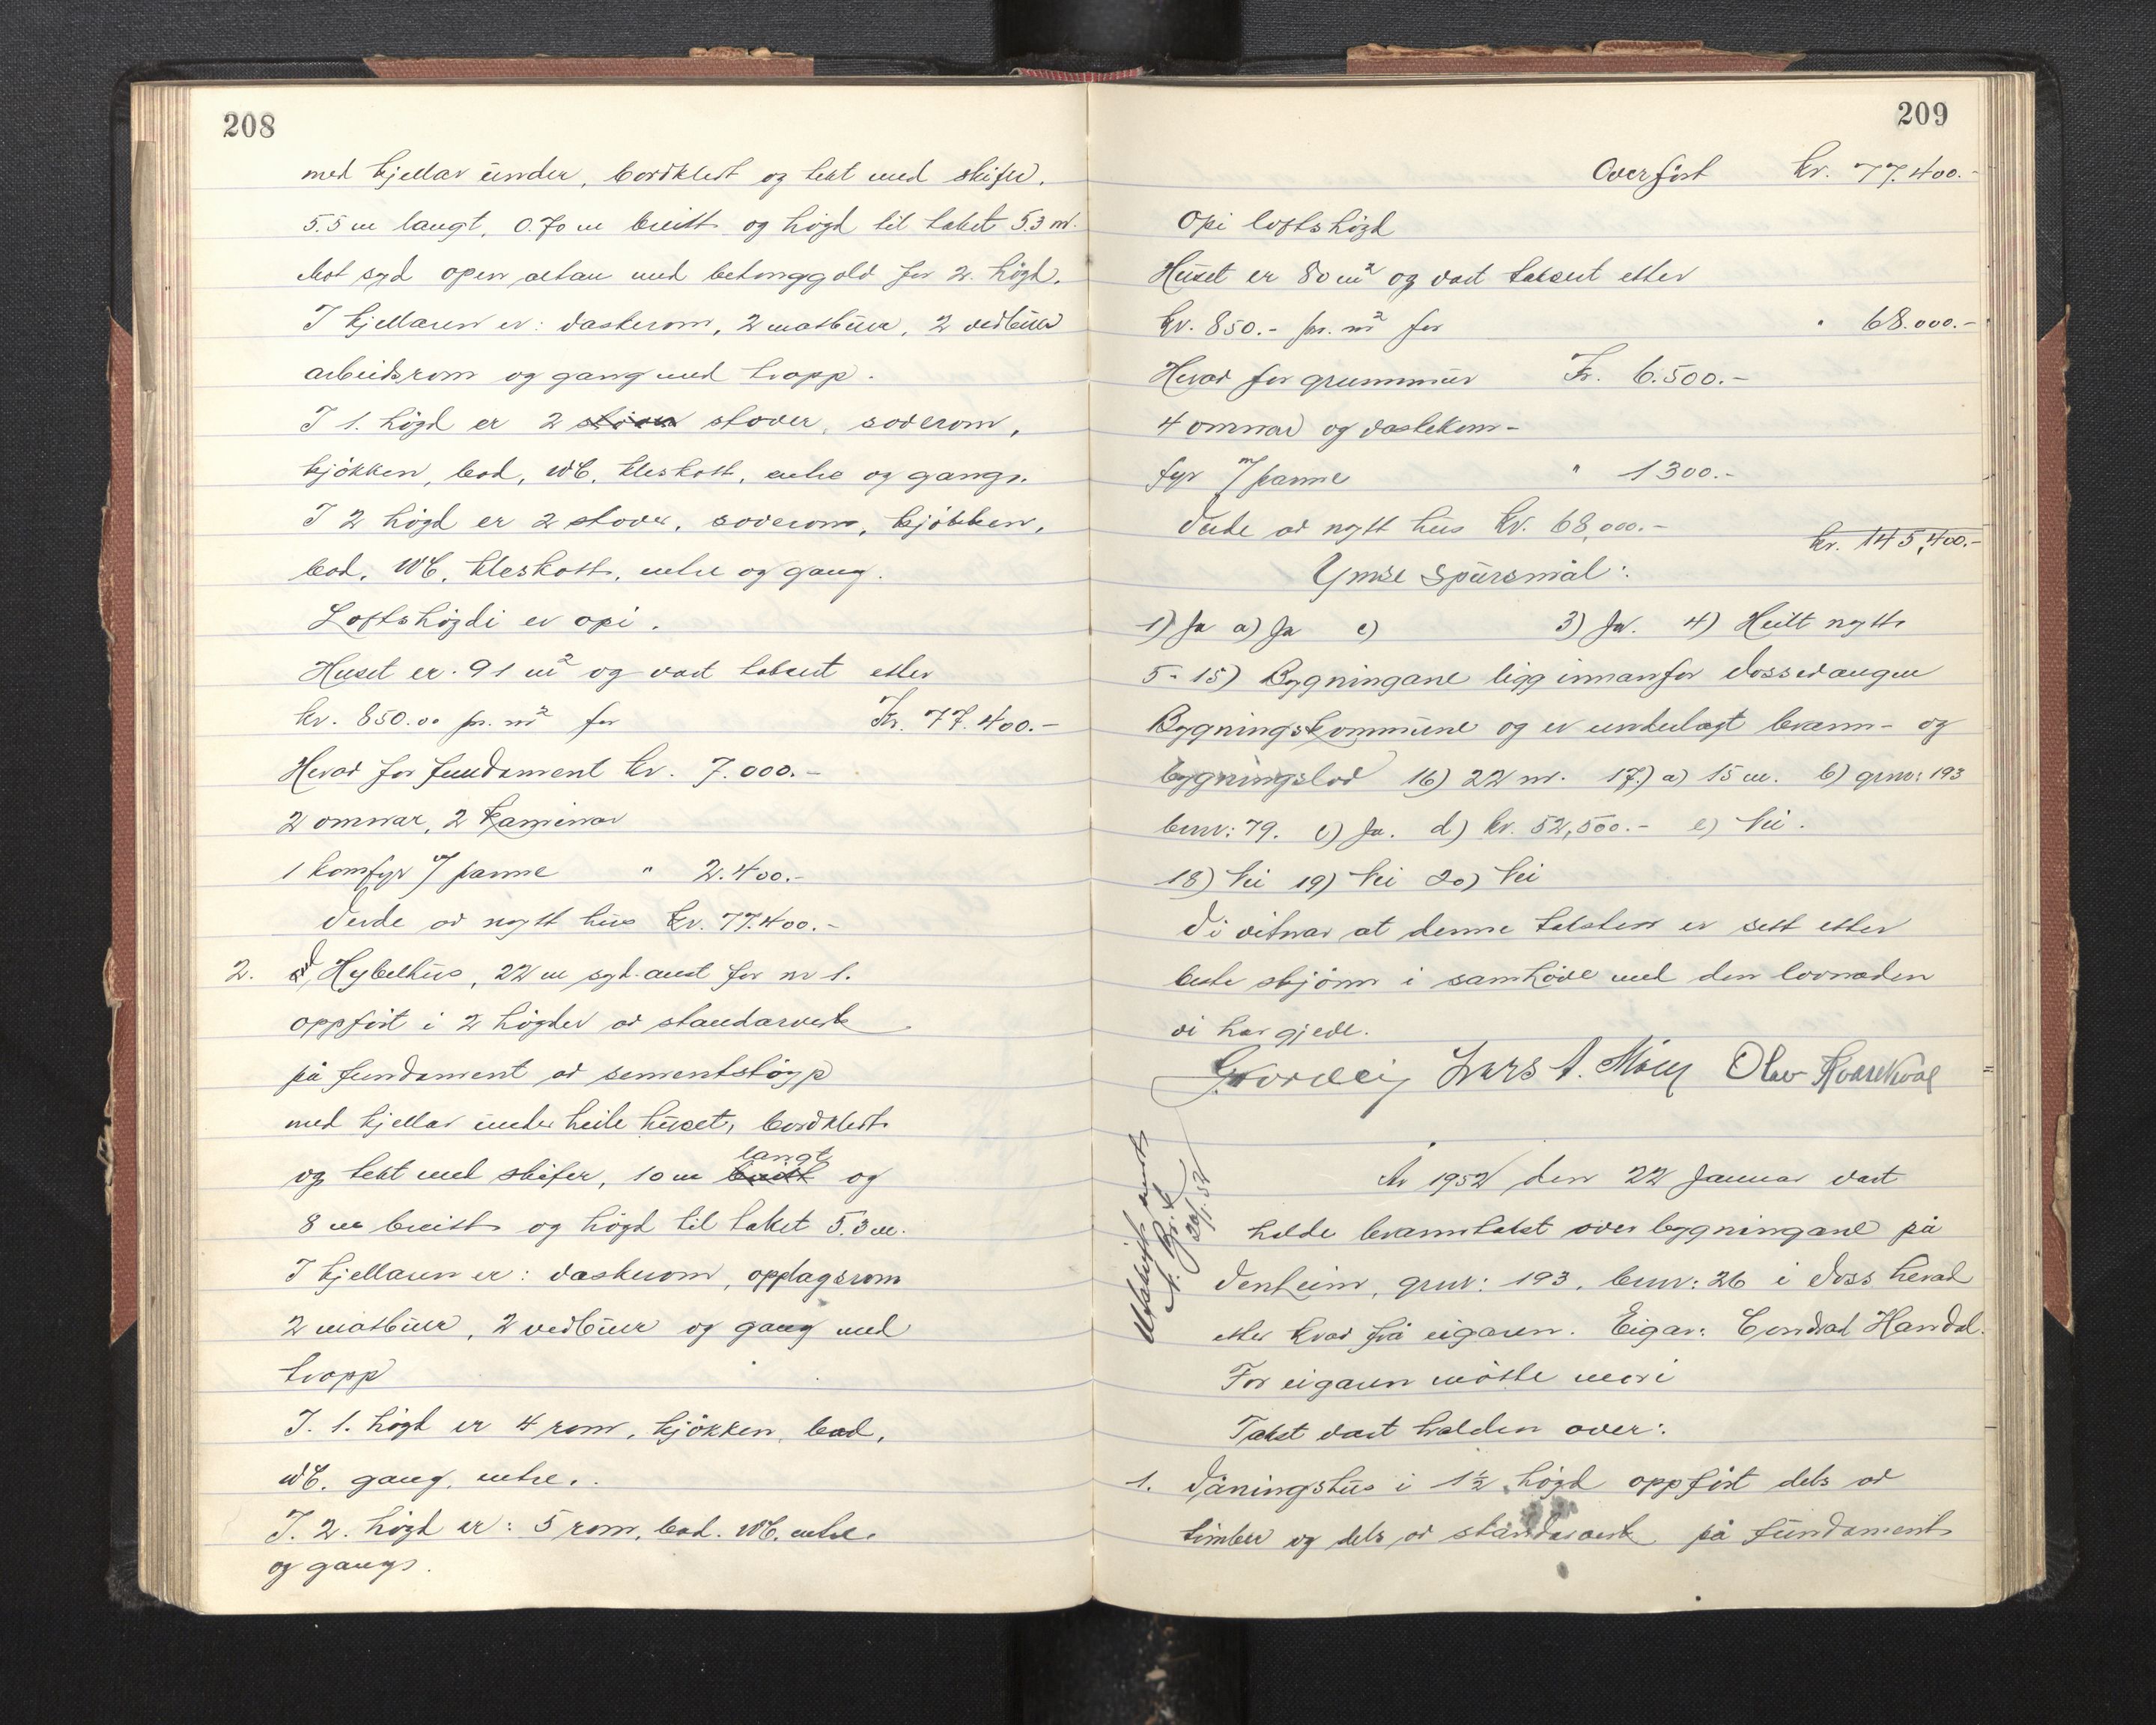 208
med kjellar under, bordkledt og tekt med skifer.
5.5 m langt, 0.70 m breitt og högd til taket 5.3 m.
Mot syd open altan med betonggolv for 2. högd.
I kjellaren er: vaskerom, 2 matbuer, 2 vedbuer
arbeidsrom og gang med tropp.
I 1. högd er 2 stover, soverom,
kjökken, bad, WC, kleskott, entre og gang.
I 2 högd er 2 stover, soverom, kjökken,
bad, WC, kleskott, entre og gang.
Loftshögdi er opi.
Huset er 91 m² og vart taksert etter
kr. 850.00 pr. m² for Kr. 77.400.-
Herav for fundament kr. 7.000.-
2 omnar, 2 kaminar
1 komfyr m/ panne " 2.400.-
Verde av nytt hus kr. 77.400.-
2. Hybelhus, 22 m syd-aust for nr 1.
oppfört i 2 högder av standarverk
på fundament av sementstöyp
med kjellar under heile huset, bordkledt
og tekt med skifer, 10 m langt og
8 m breitt og högd til taket 5.3 m.
I kjellaren er: vaskerom, opplagsrom
2 matbuer, 2 vedbuer og gang med
tropp
I. 1. högd er 4 rom, kjökken, bad,
WC. gang, entre.
I. 2. högd er: 5 rom, bad. WC. entre.
og gang.
209
Overfört kr. 77.400.-
Opi loftshögd
Huset er 80 m² og vart taksert etter
kr. 850.- pr. m² for " 68.000.-
Herav for grunnmur Kr. 6.500.-
4 omnar og vaskekom-
fyr m/ panne " 1300.-
Verde av nytt hus kr. 68,000.-
kr. 145,400.-
Ymse Spursmål:
1) Ja a) Ja c) 3) Ja. 4) Heilt nytt
5-15) Bygningane ligg innanfor Vossevangen
Bygningskommune og er underlagt brann- og
bygningslov 16) 22 m. 17) a) 15 m. b) gnr: 193
bnr: 79. c) Ja. d) kr. 52,500.- e) Nei.
18) Nei 19) Nei 20) Nei
Vi vitnar at denne taksten er sett etter
beste skjönn i samhöve med den lovnaden
vi har gjeve.
Lars A. Olav
Utskrift sendt
20/1. 52
År 1952 den 22 Januar vart
halde branntakst over bygningane på
Venheim, gnr: 193, bnr: 26 i Voss herad
etter krav frå eigaren. Eigar: Conrad Handal.
For eigaren mötte
Takst vart halden over:
1. Våningshus i 1½ högd oppfört dels av
timber og dels av standarverk på fundament